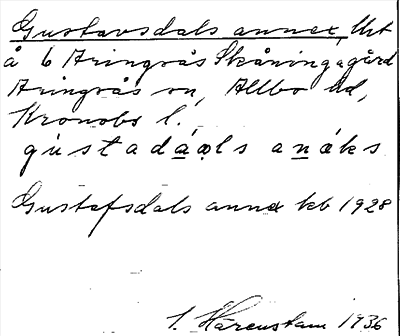 Gustavsdals annex, Urt
å 6 Aringsås Skåningagård
Aringsås sn, Allbo hd,
Kronobs l.
gùstadá̱ạls aṉáks
Gustafsdals annex kb 1928
I. Härenstam 1936